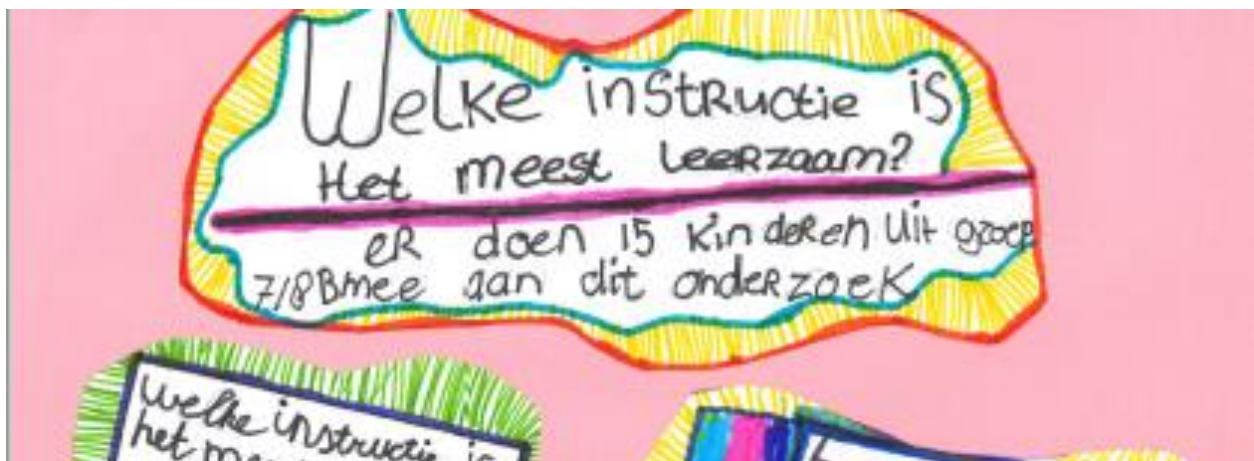 Welke instructie is
Het meest leerzaam?
er doen 15 kinderen uit groep
7/8B mee aan dit onderzoek
welke instructie is
het